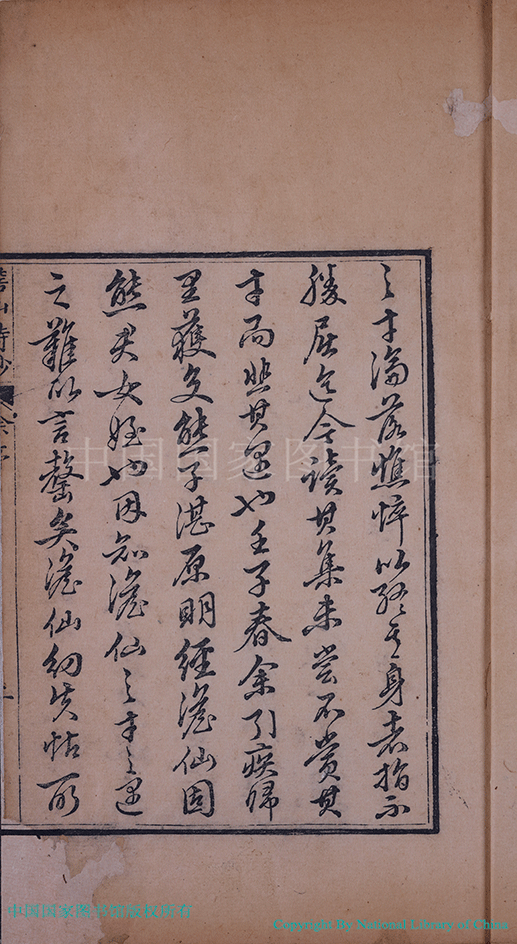 之才淪落憔悴以終其身者指不
勝屈迄今讀其集未嘗不賞其
才而悲其遇也壬子春余引疾歸
里獲交熊子湛原明經澹仙固
熊君女姪也因知澹仙之才之遇
之難以言罄矣澹仙幼失怙所
詩鈔
中国国家图书馆
中国国家图书馆版权所有
Copyright By National Library of China